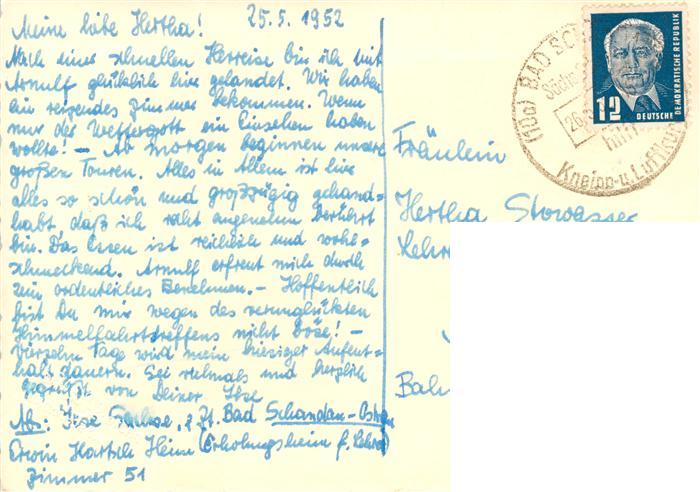 Meine liebe Hertha! 25.5.1952
Nach einer schnellen Herreise bin ich mit
Arnulf glücklich hier gelandet. Wir haben
ein reizendes Zimmer bekommen. Wenn
nur der Wettergott ein Einsehen haben
wollte! – Ab morgen beginnen unsere
großen Touren. Alles in Allem ist hier
alles so schön und großzügig gehand=
habt, daß ich recht angenehm berührt
bin. Das Essen ist reichlich und wohl=
schmeckend. Arnulf erfreut mich durch
sein ordentliches Benehmen. – Hoffentlich
bist Du mir wegen des verunglückten
Himmelfahrtstreffens nicht böse! –
Vierzehn Tage wird mein hiesiger Aufent=
halt dauern. Sei vielmals und herzlich
gegrüßt von Deiner Ilse
Abs: Ilse, z. Zt. Bad Schandau-Ostrau
Erwin Hartsch Heim (Erholungsheim f. Lehrer)
Zimmer 51
(10a) BAD SC
26
Kneipp- u. Luftkur
12
DEUTSCHE
DEMOKRATISCHE REPUBLIK
Fräulein
Hertha Stowasser
Lehr
Bah